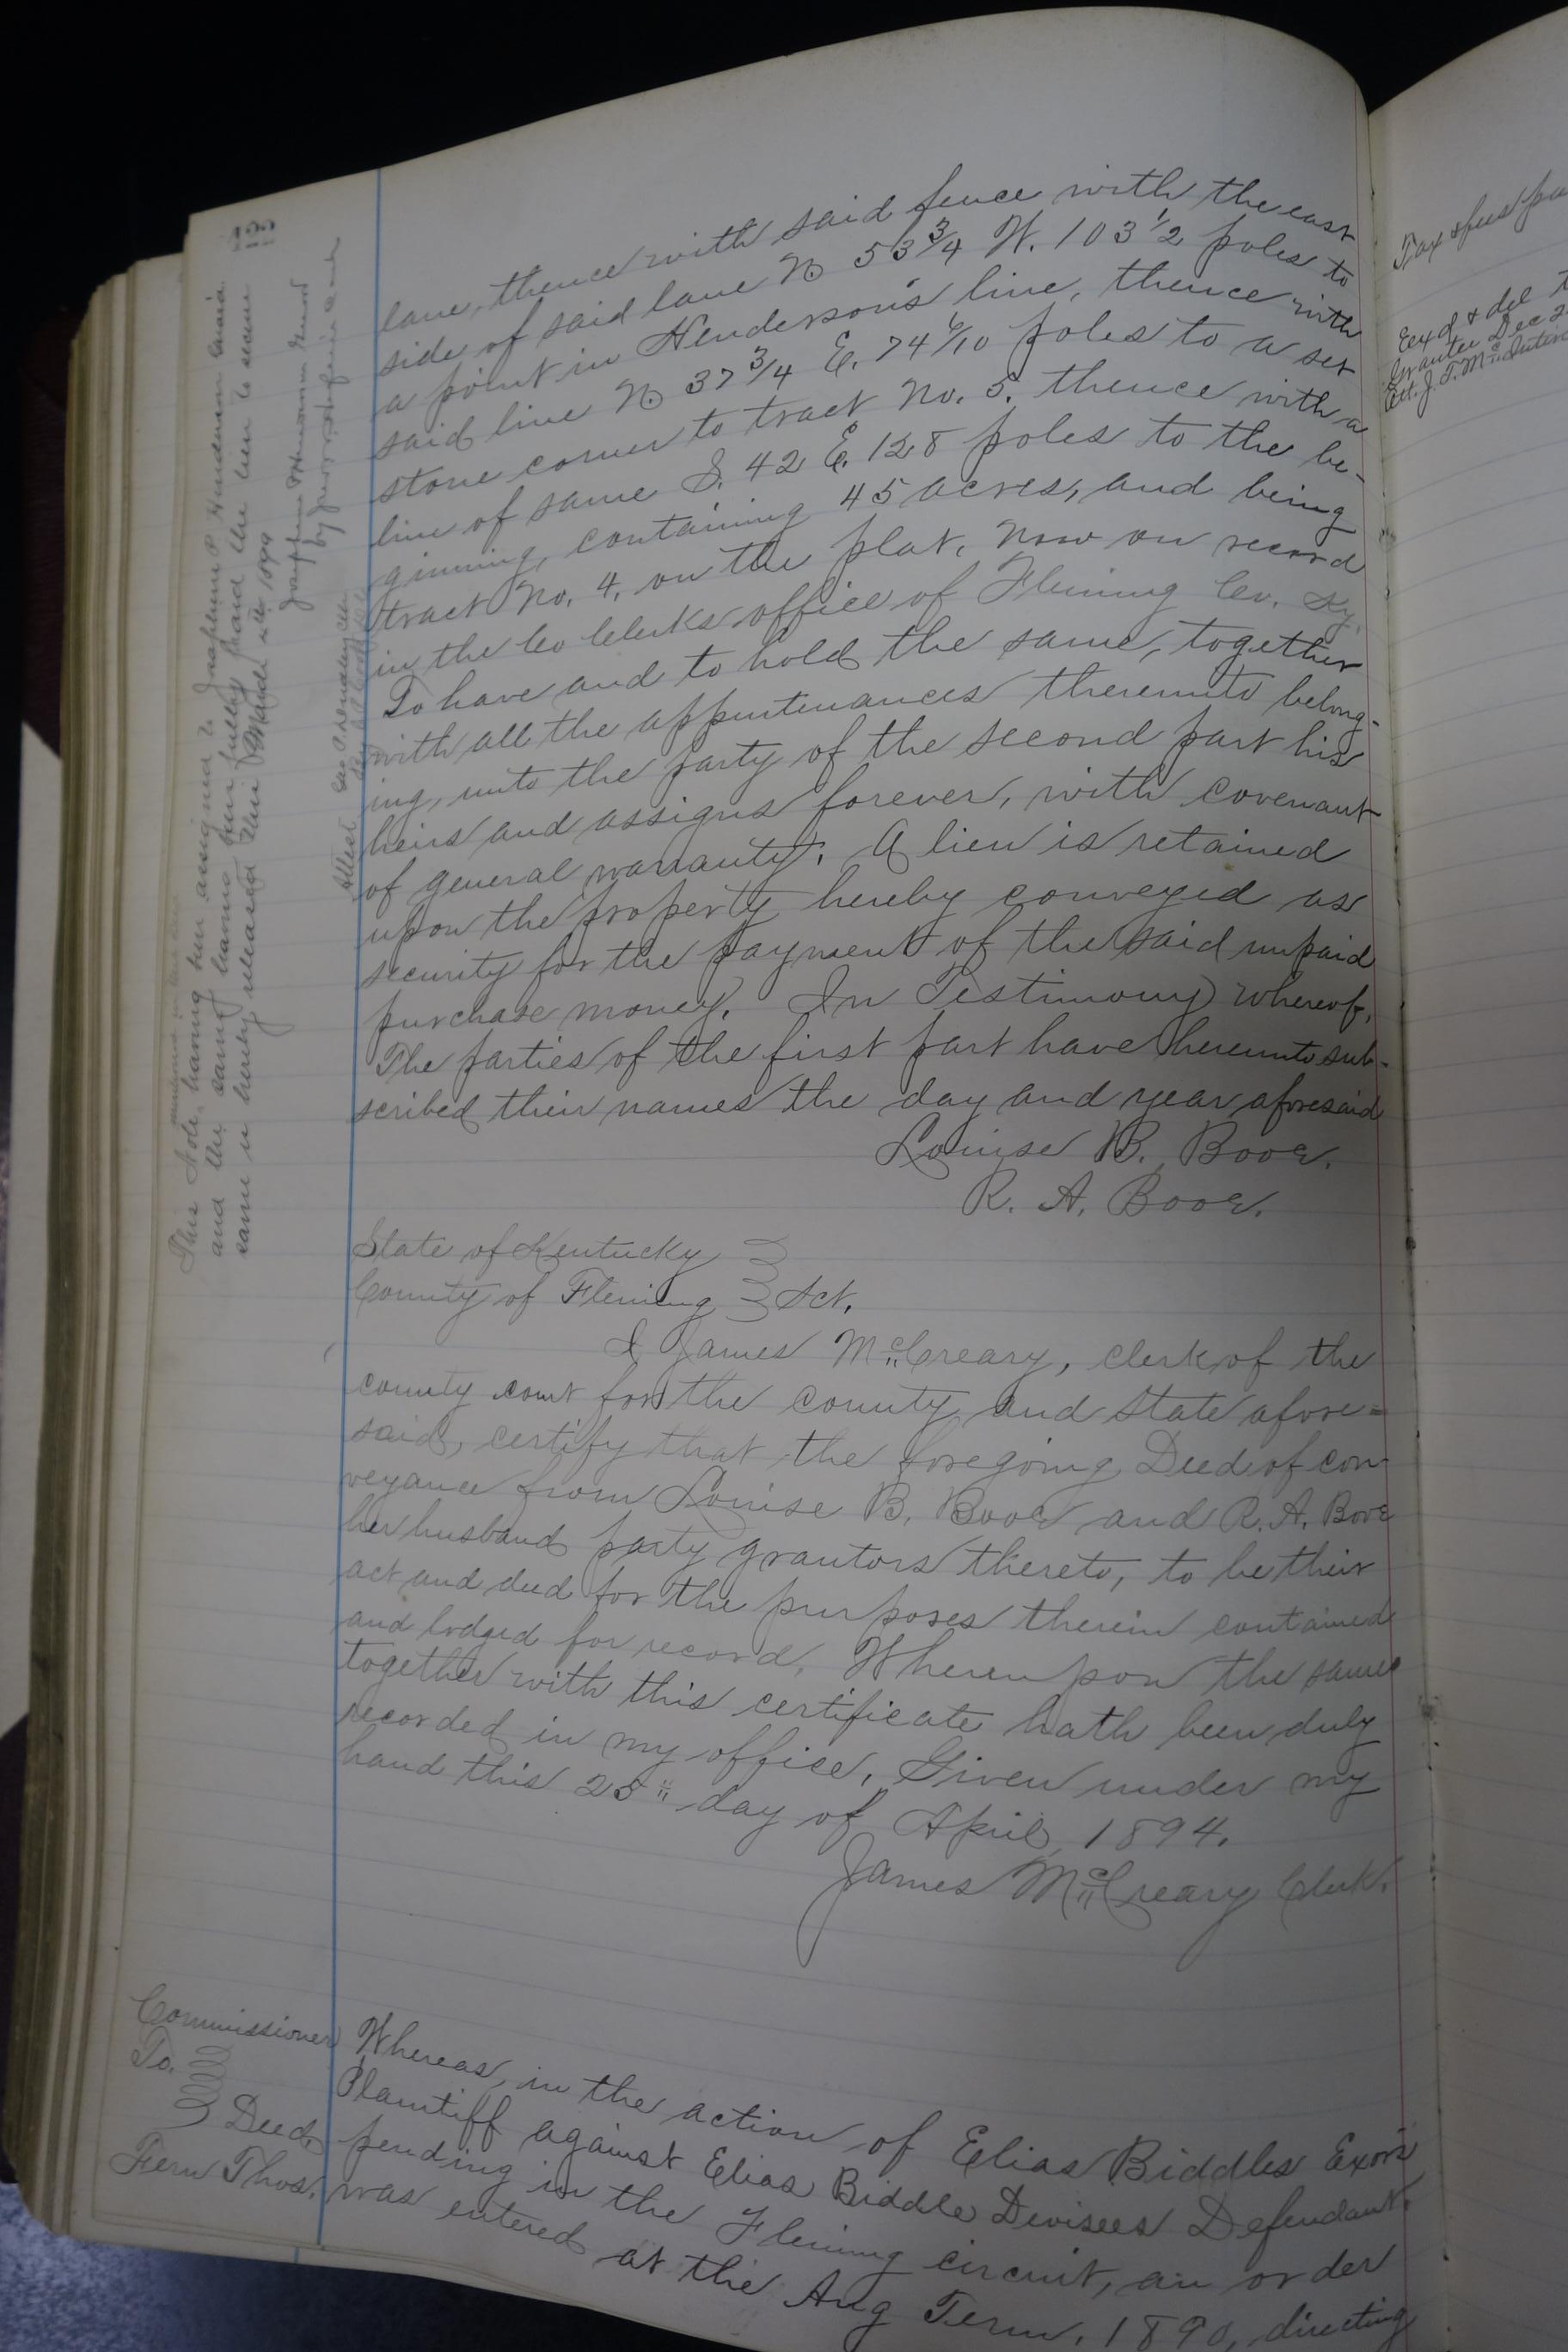 lane, thence with said fence with the east
side of said lane N 53 3/4 W. 103 1/2 poles to
a point in Henderson's line, thence with
said line N 37 3/4 E. 74 6/10 poles to a set
stone corner to tract No. 5. thence with a
line of same S. 42 E. 128 poles to the be-
ginning, containing 45 acres, and being
tract No. 4. on the plat, now on record
in the Co Clerks office of Fleming Co. Ky.
To have and to hold the same, together
with all the appurtenances thereunto belong-
ing, unto the party of the second part his
heirs and assigns forever, with covenant
of general warranty. A lien is retained
upon the property hereby conveyed as
security for the payment of the said unpaid
purchase money. In Testimony whereof,
The parties of the first part have hereunto sub-
scribed their names the day and year aforesaid
Louise B. Booe.
R. A. Booe.
State of Kentucky
County of Fleming Sct.
I James McCreary, clerk of the
county court for the county and state afore=
said, certify that the foregoing Deed of con-
veyance from Louise B. Booe and R. A. Booe
her husband party grantors thereto, to be their
act and deed for the purposes therein contained
and lodged for record, Whereupon the same
together with this certificate hath been duly
recorded in my office, Given under my
hand this 25" day of April, 1894.
James McCreary Clerk.
Commissioner
To.
Deed
Fern Thos.
Whereas, in the action of Elias Biddles Exors
Plaintiff against Elias Biddle Devisees Defendant.
pending in the Fleming circuit, an order
was entered at the Aug Term, 1890, directing
This Note having been assigned to Josephine P Henderson
and the same having been fully paid the lien to secure
same is hereby released this 1899
Attest
Tax & fees
Exd & del
Grantee Dec